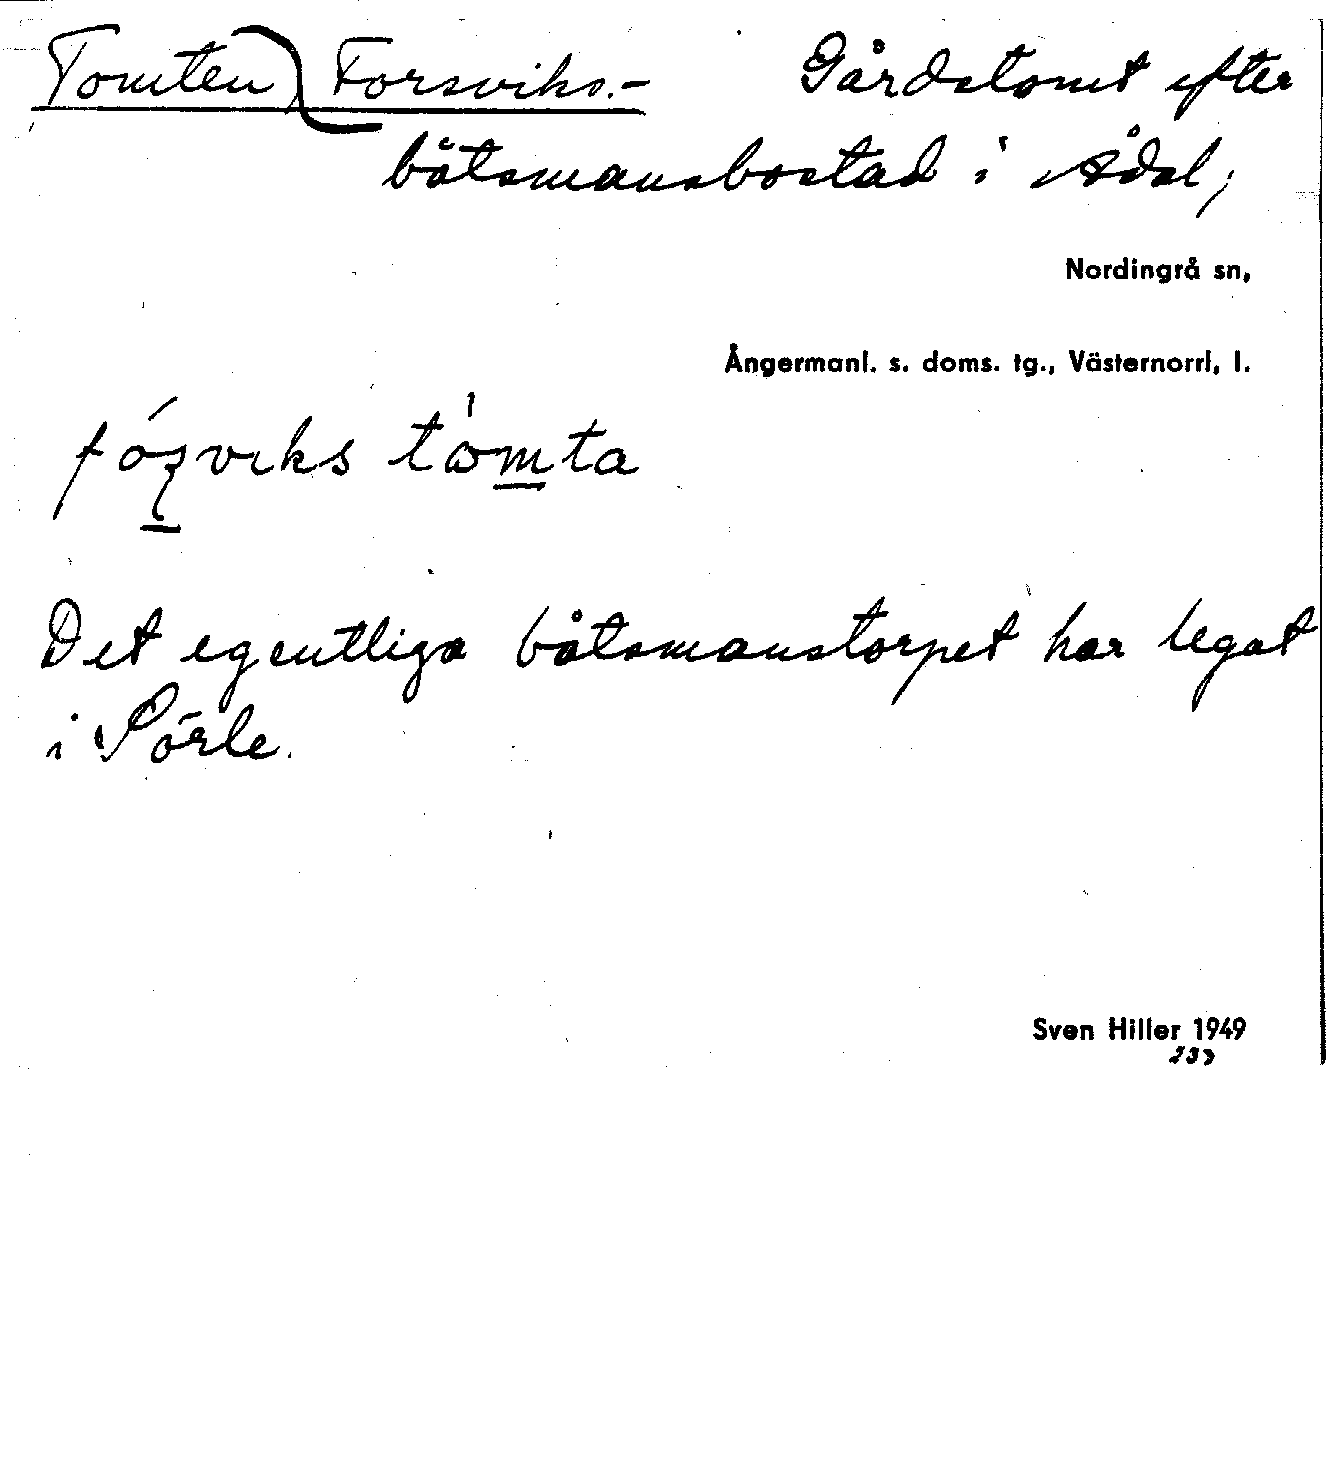 Tomten, Forsviks.- Gårdstomt efter
båtsmansbostad i Ådal,
Nordingrå sn,
Ångermanl. s. doms. tg., Västernorrl, l.
tómta
Det egentliga båtsmanstorpet har legat
i Sörle.
Sven Hiller 1949